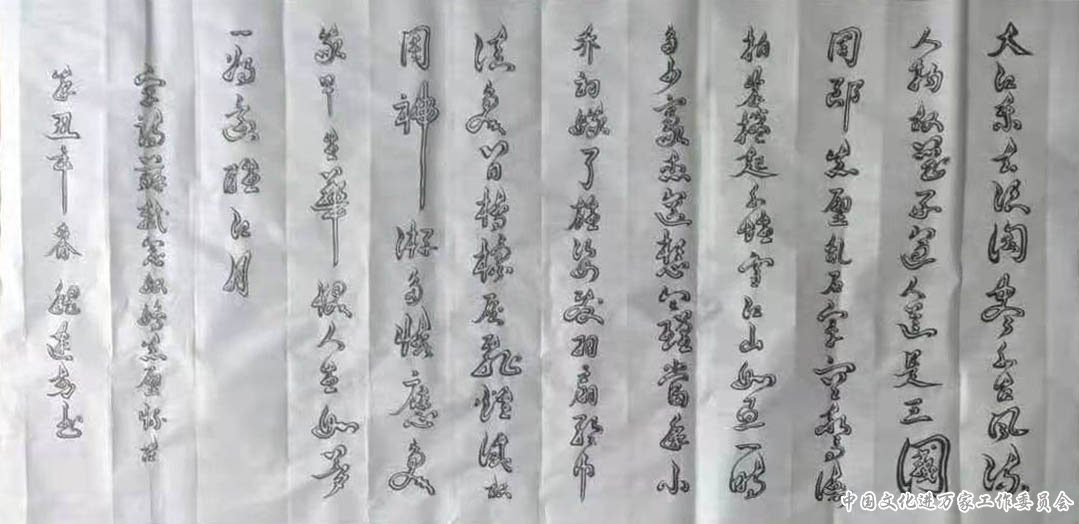 大江东去浪淘尽千古风流
人物故垒西边人道是三國
周郎赤壁乱石穿空惊涛
拍岸捲起千堆雪江山如画一時
多少豪杰遥想公瑾當年小
乔初嫁了雄姿英发羽扇纶巾
谈笑间樯橹灰飛煙滅故
国神游多情應笑
我早生華髮人生如梦
一尊还酹江月
宋詩蘇軾念奴娇赤壁怀古
辛丑年春书
中国文化进万家工作委员会